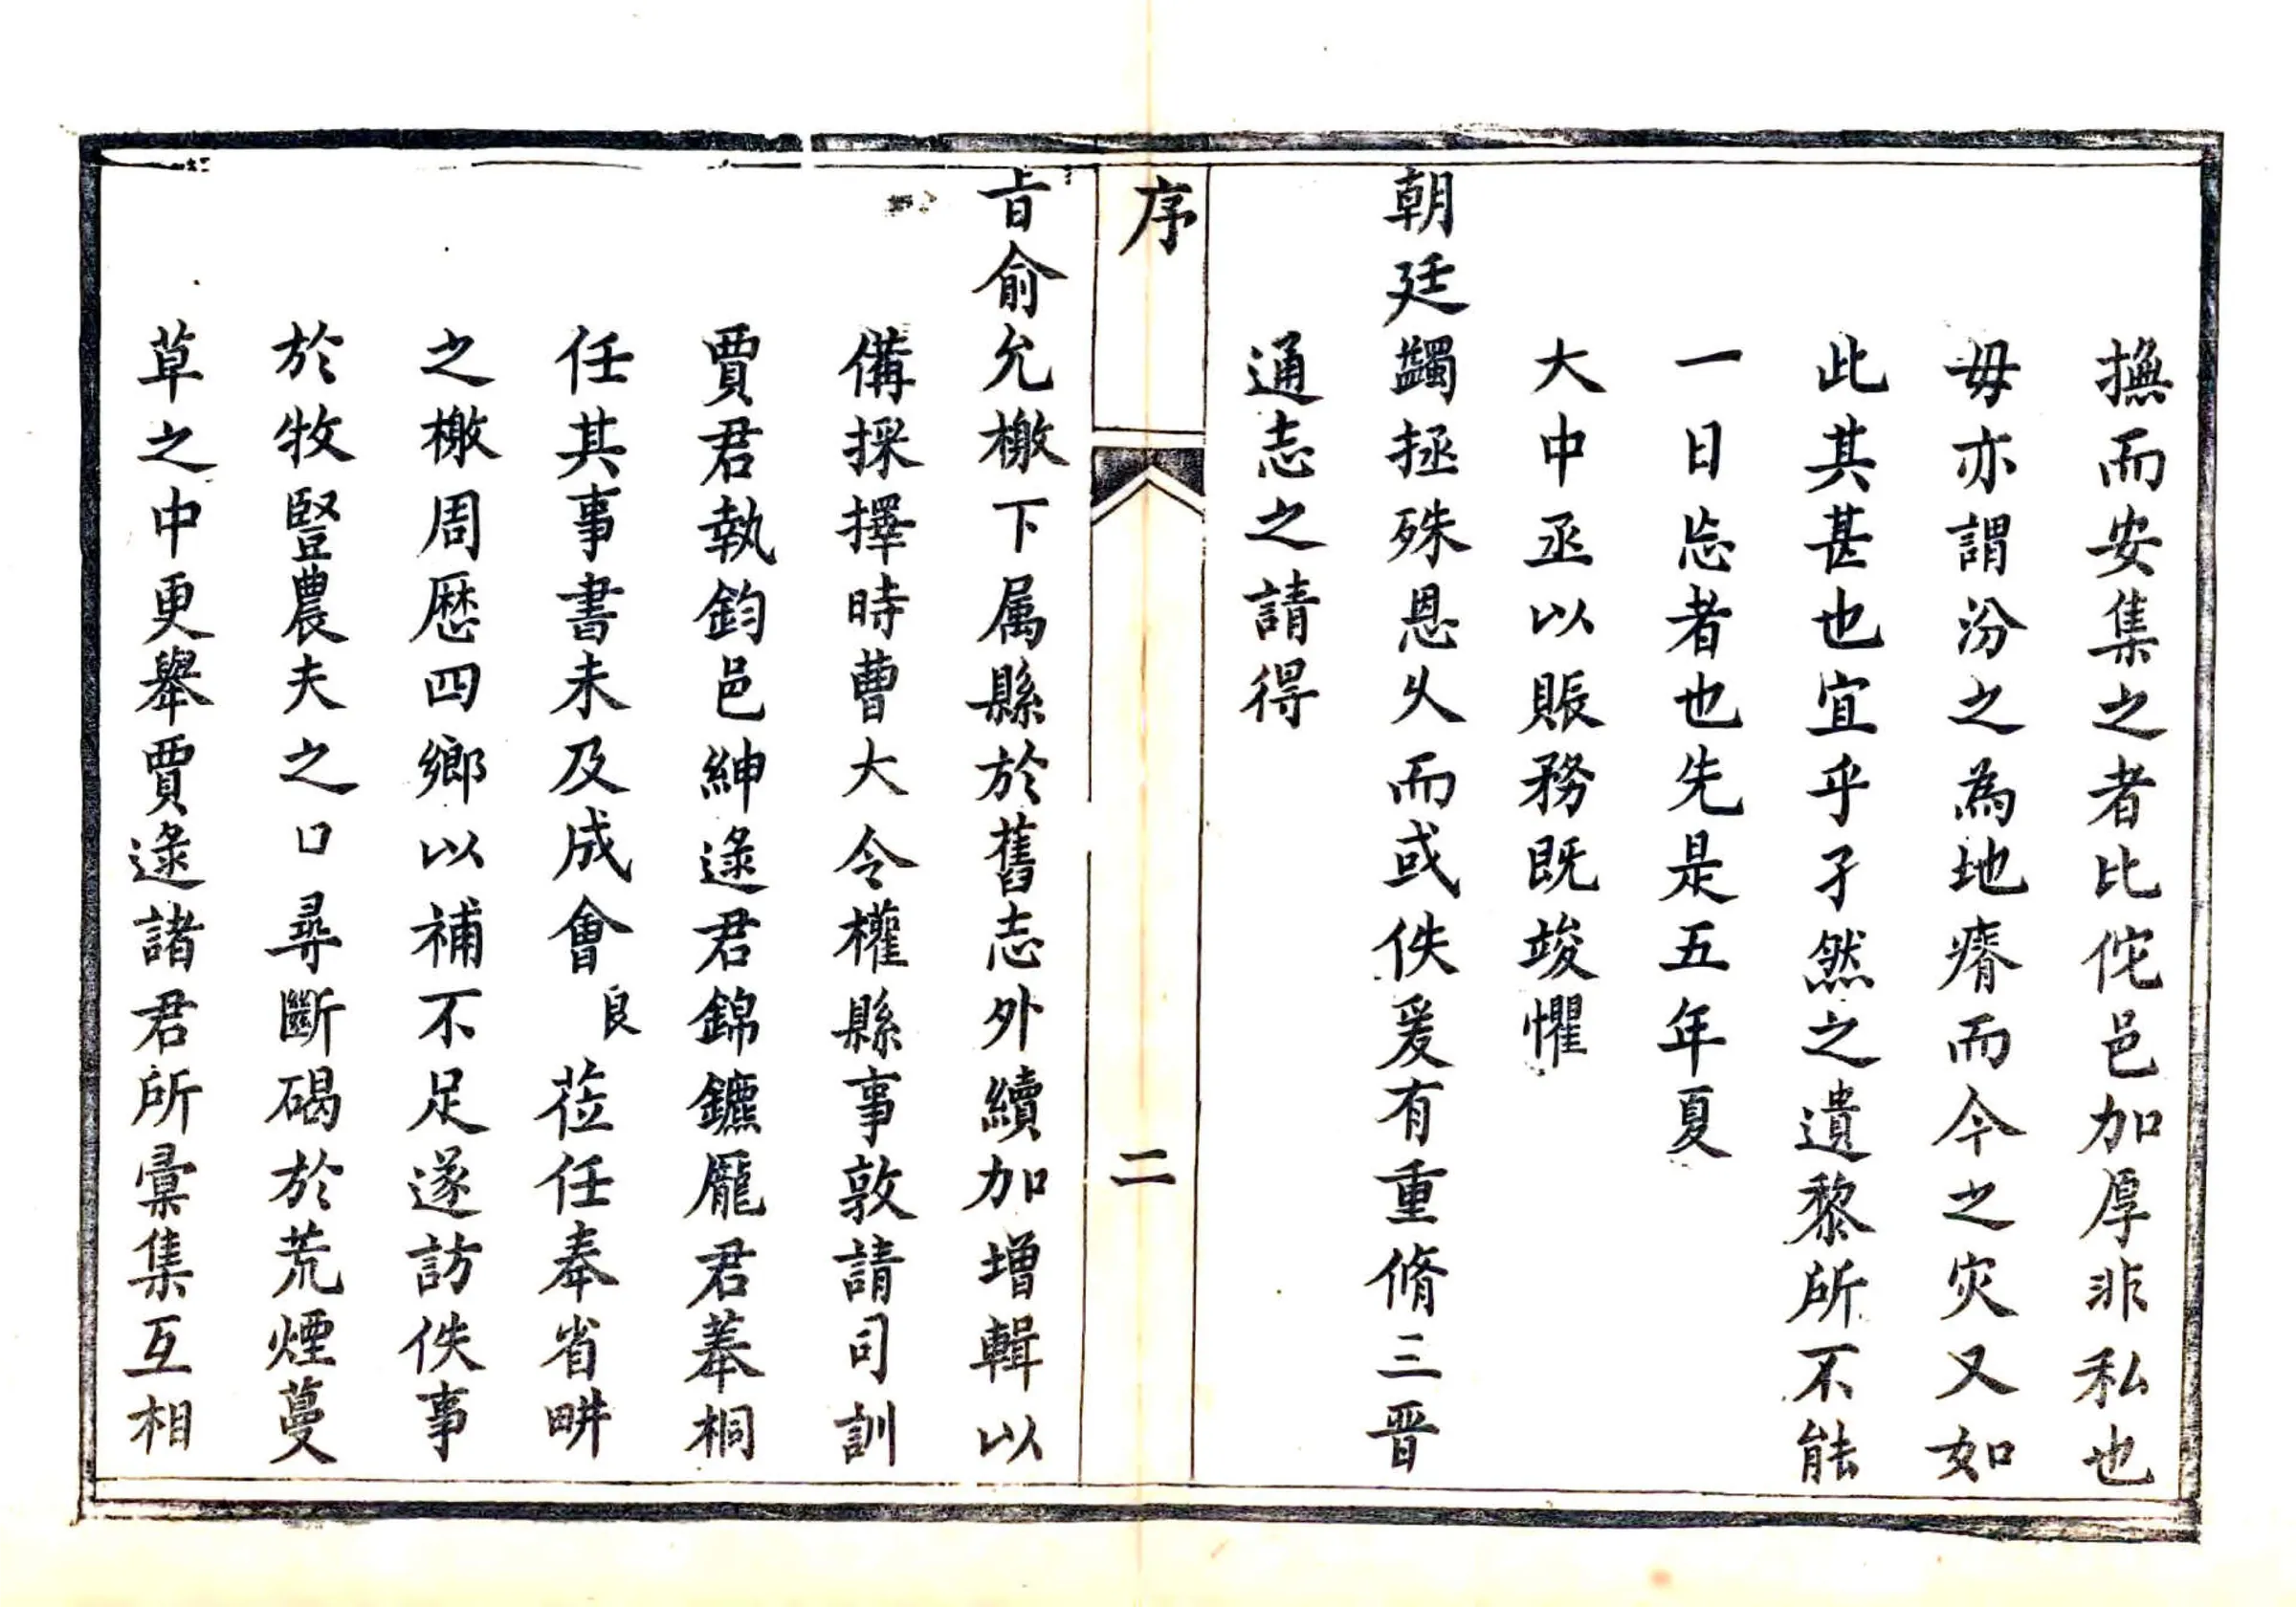 撫而安集之者比佗邑加厚非私也
毋亦謂汾之為地瘠而今之灾又如
此其甚也宜乎孑然之遺黎所不能
一日忘者也先是五年夏
大中丞以賑務既竣懼
朝廷蠲拯殊恩乆而或佚爰有重脩三晉
通志之請得
序
二
旨俞允檄下属縣於舊志外續加增輯以
備採擇時曹大令權縣事敦請司訓
賈君執鈞邑紳逯君錦鑣龎君菶桐
任其事書未及成會良莅任奉省畊
之檄周歷四鄉以補不足遂訪佚事
於牧豎農夫之口尋斷碣於荒煙蔓
草之中更舉賈逯諸君所彙集互相